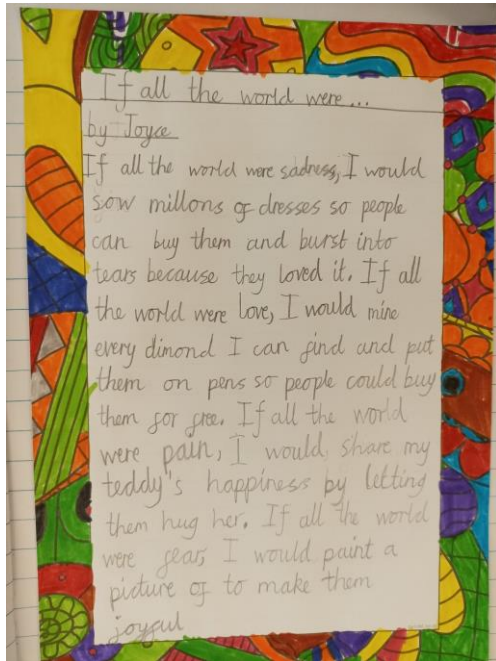 If all the world were...
by Joyce
If all the world were sadness, I would
sow millons of dresses so people
can buy them and burst into
tears because they loved it. If all
the world were love, I would mine
every dimond I can find and put
them on pens so people could buy
them for free. If all the world
were pain, I would share my
teddy's happiness by letting
them hug her. If all the world
were fear, I would paint a
picture of to make them
joyful